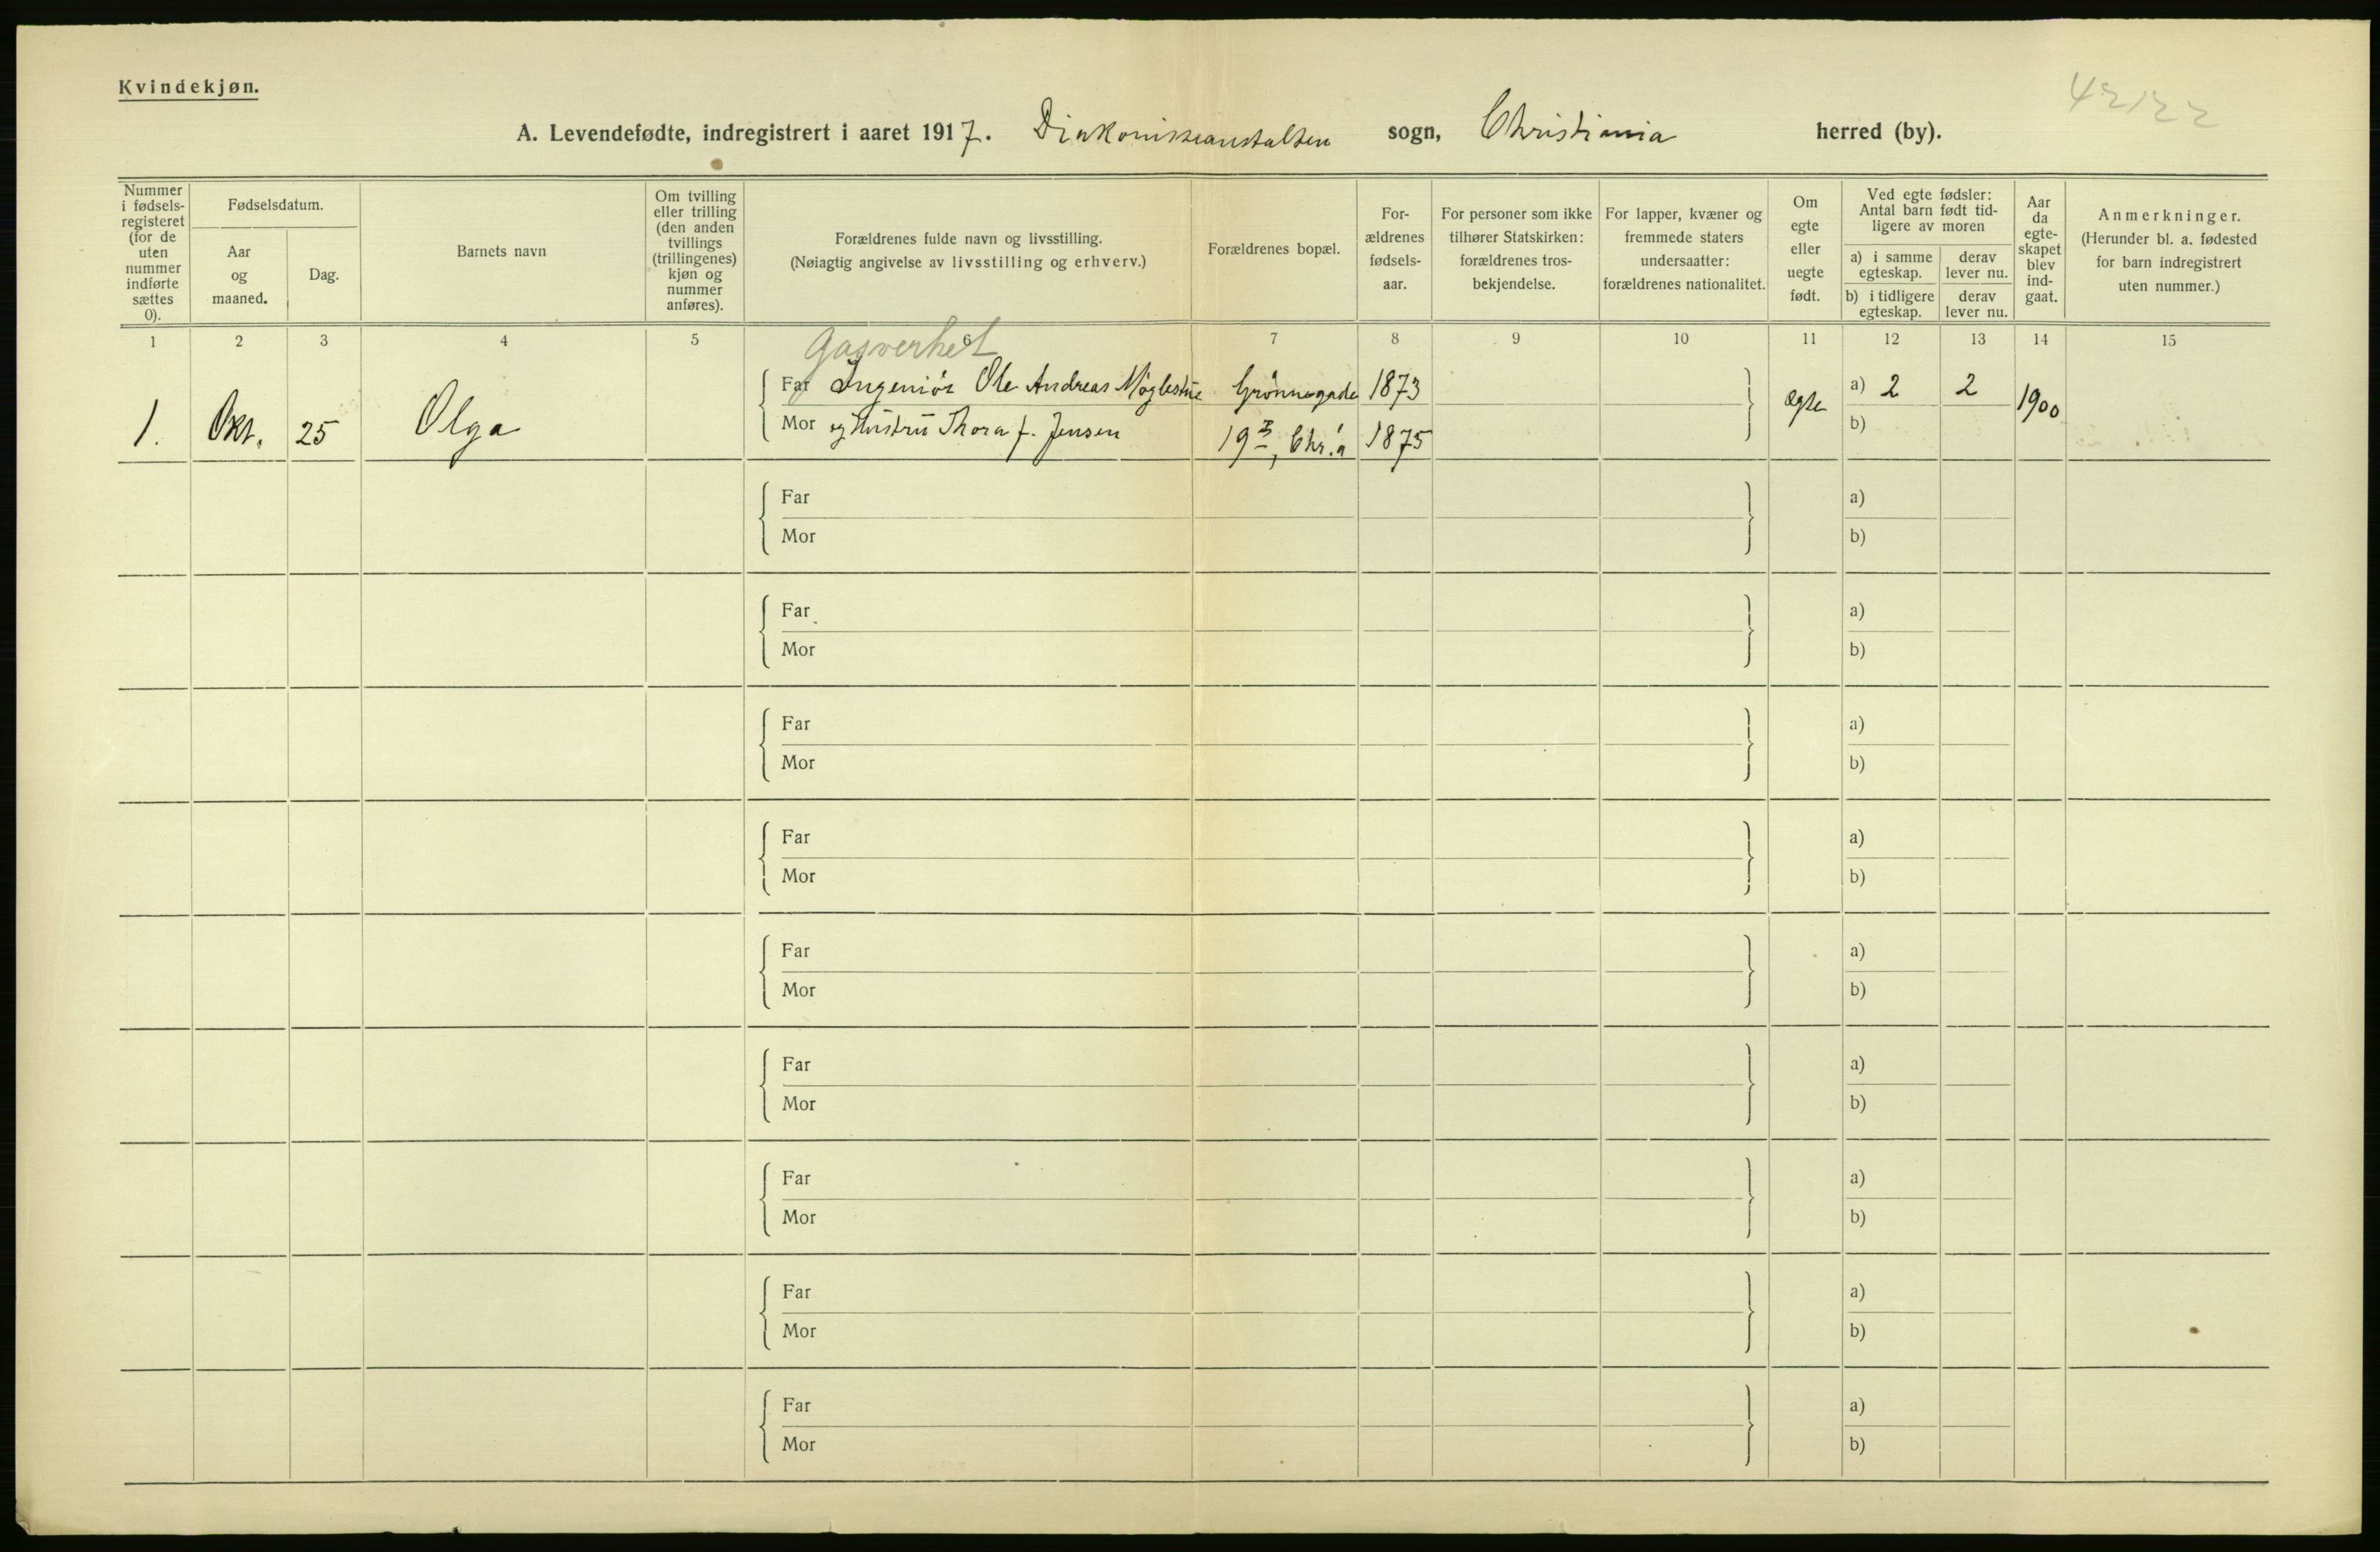 Kvindekjøn.
A. Levendefødte, indregistrert i aaret 1917. Diakonisseanstalten sogn, Christiania herred (by).
Nummer i fødsels-registeret (for de uten nummer indførte sættes 0).
Fødselsdatum.
Aar og maaned.
Dag.
Barnets navn
Om tvilling eller trilling (den anden tvillings (trillingenes) kjøn og nummer anføres).
Forældrenes fulde navn og livsstilling.
(Nøiagtig angivelse av livsstilling og erhverv.)
Forældrenes bopæl.
For-ældrenes fødsels-aar.
For personer som ikke tilhører Statskirken: forældrenes tros-bekjendelse.
For lapper, kvæner og fremmede staters undersaatter: forældrenes nationalitet.
Om egte eller uegte født.
Ved egte fødsler: Antal barn født tid-ligere av moren
a) i samme egteskap.
derav lever nu.
b) i tidligere egteskap.
derav lever nu.
Aar da egte-skapet blev ind-gaat.
Anmerkninger.
(Herunder bl. a. fødested for barn indregistrert uten nummer.)
1 2 3 4 5 6 7 8 9 10 11 12 13 14 15
Gasverket
Far Ingeniör Ole Andreas Møglestue Grönnegade 1873 a) 2 2
1. Okt. 25 Olga egte 1900
Mor og Hustru Thora f. Jensen 19 B, Chr.a 1875 b)
Far a)
Mor b)
Far a)
Mor b)
Far a)
Mor b)
Far a)
Mor b)
Far a)
Mor b)
Far a)
Mor b)
Far a)
Mor b)
Far a)
Mor b)
Far a)
Mor b)